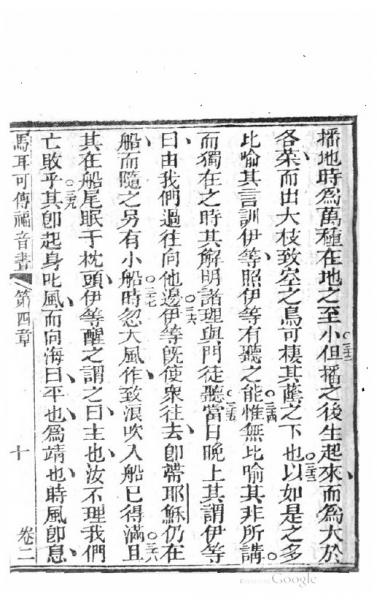 播地時爲萬種在地之至小但播之後生起來而爲大於
各菜而出大枝致空之鳥可棲其蔭之下也以如是之多
比喻其言訓伊等照伊等有聽之能惟無比喻其非所講
而獨在之時其解明諸理與門徒聽當日晚上其謂伊等
曰由我們過往向他邊伊等旣使衆往去卽帶耶穌仍在
船而隨之另有小船時忽大風作致浪吹入船已得滿且
其在船尾眠于枕頭伊等醒之謂之曰主也汝不理我們
亡敗乎其卽起身叱風而向海曰平也爲靖也時風卽息
馬耳可傳福音書 第四章 十 卷二
Google